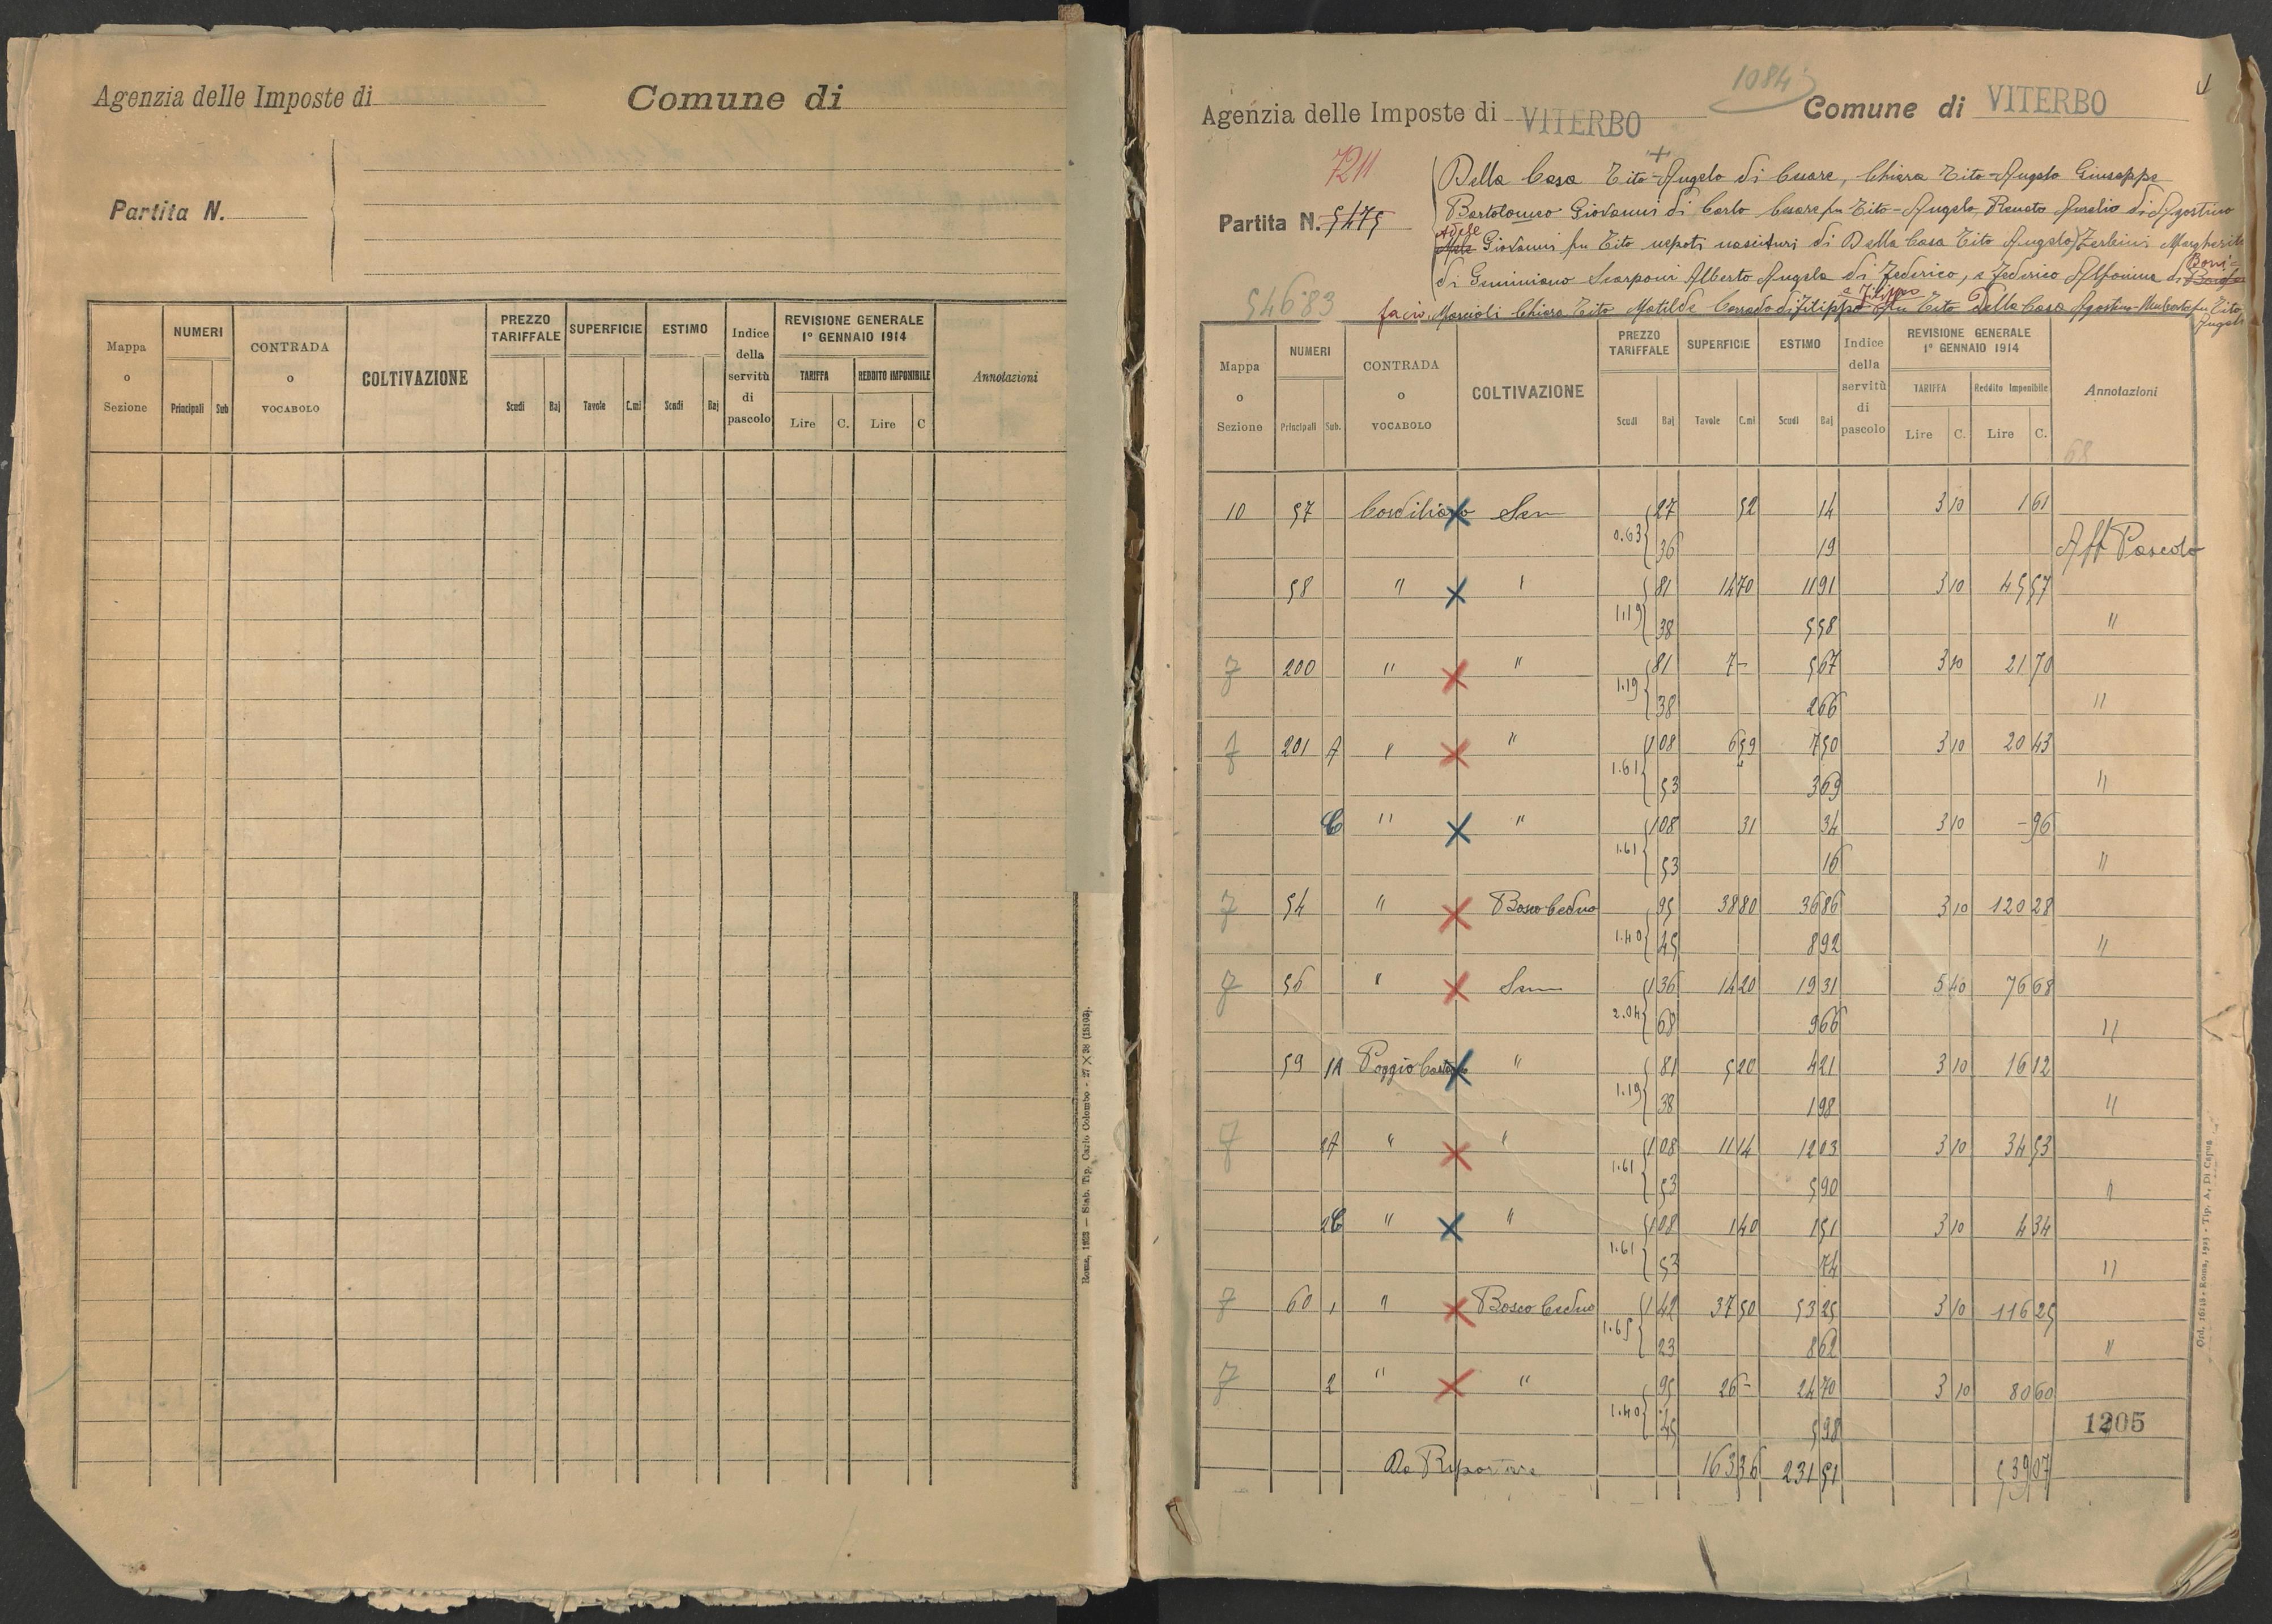 Agenzia delle Imposte di
Comune di
Partita N.
Mappa o Sezione
NUMERI
Principali
Sub
CONTRADA o VOCABOLO
COLTIVAZIONE
PREZZO TARIFFALE
Scudi
Baj
SUPERFICIE
Tavole
C.mi
ESTIMO
Scudi
Baj
Indice della servitù di pascolo
REVISIONE GENERALE
1° GENNAIO 1914
TARIFFA
REDDITO IMPONIBILE
Lire
C.
Lire
C
Annotazioni
Roma, 1923 — Stab. Tip. Carlo Colombo - 27 X 38 (15193).
1084
Agenzia delle Imposte di VITERBO
Comune di VITERBO
7211
Partita N. 5475
54683
Della Casa Tito-Angelo di Cesare, Chiara Tito-Angelo Giuseppe
Bartolomeo Giovanni di Carlo Cesare fu Tito-Angelo Renato Aurelio di Agostino
Adele Giovanni fu Tito nepoti nascituri di Della Casa Tito Angelo) Zerbini Margherita
di Geminiano Scarponi Alberto Angela di Federico, e Federico Alfonsina di Boni=
facio, Mascioli Chiara Tito Matilde Corrado di Filippo e Filippo fu Tito Della Casa Agostino-Umberto fu Tito
Angelo
Mappa o Sezione
NUMERI
Principali
Sub.
CONTRADA o VOCABOLO
COLTIVAZIONE
PREZZO TARIFFALE
Scudi
Baj
SUPERFICIE
Tavole
C.mi
ESTIMO
Scudi
Baj
Indice della servitù di pascolo
REVISIONE GENERALE
1° GENNAIO 1914
TARIFFA
Reddito Imponibile
Lire
C.
Lire
C.
Annotazioni
68
10 57 Cordiliano Sem 27 52 14 3 10 1 61
0.63 36 19 Aff Pascolo
58 " " 81 14 70 11 91 3 10 45 57
1.19 38 5 58 "
7 200 " " 81 7 - 5 67 3 10 21 70
1.19 38 2 66 "
7 201 A " " 1 08 6 59 7 50 3 10 20 43
1.61 53 3 69 "
C " " 1 08 31 34 3 10 - 96
1.61 53 16 "
7 54 " Bosco Ceduo 95 38 80 36 86 3 10 120 28
1.40 45 8 92 "
7 56 " Sem 1 36 14 20 19 31 5 40 76 68
2.04 68 9 66 "
59 1A Poggio " 81 5 20 4 21 3 10 16 12
1.19 38 1 98 "
7 2A " " 1 08 11 14 12 03 3 10 34 53
1.61 53 5 90 "
2C " " 1 08 1 40 1 51 3 10 4 34
1.61 53 74 "
7 60 1 " Bosco Ceduo 1 42 37 50 53 25 3 10 116 25
1.65 23 8 62 "
7 2 " " 95 26 - 24 70 3 10 80 60
1.40 45 5 98
1205
Da Riportare 163 36 231 51 539 07
Ord. 16148 - Roma, 1925 - Tip. A. Di Capua